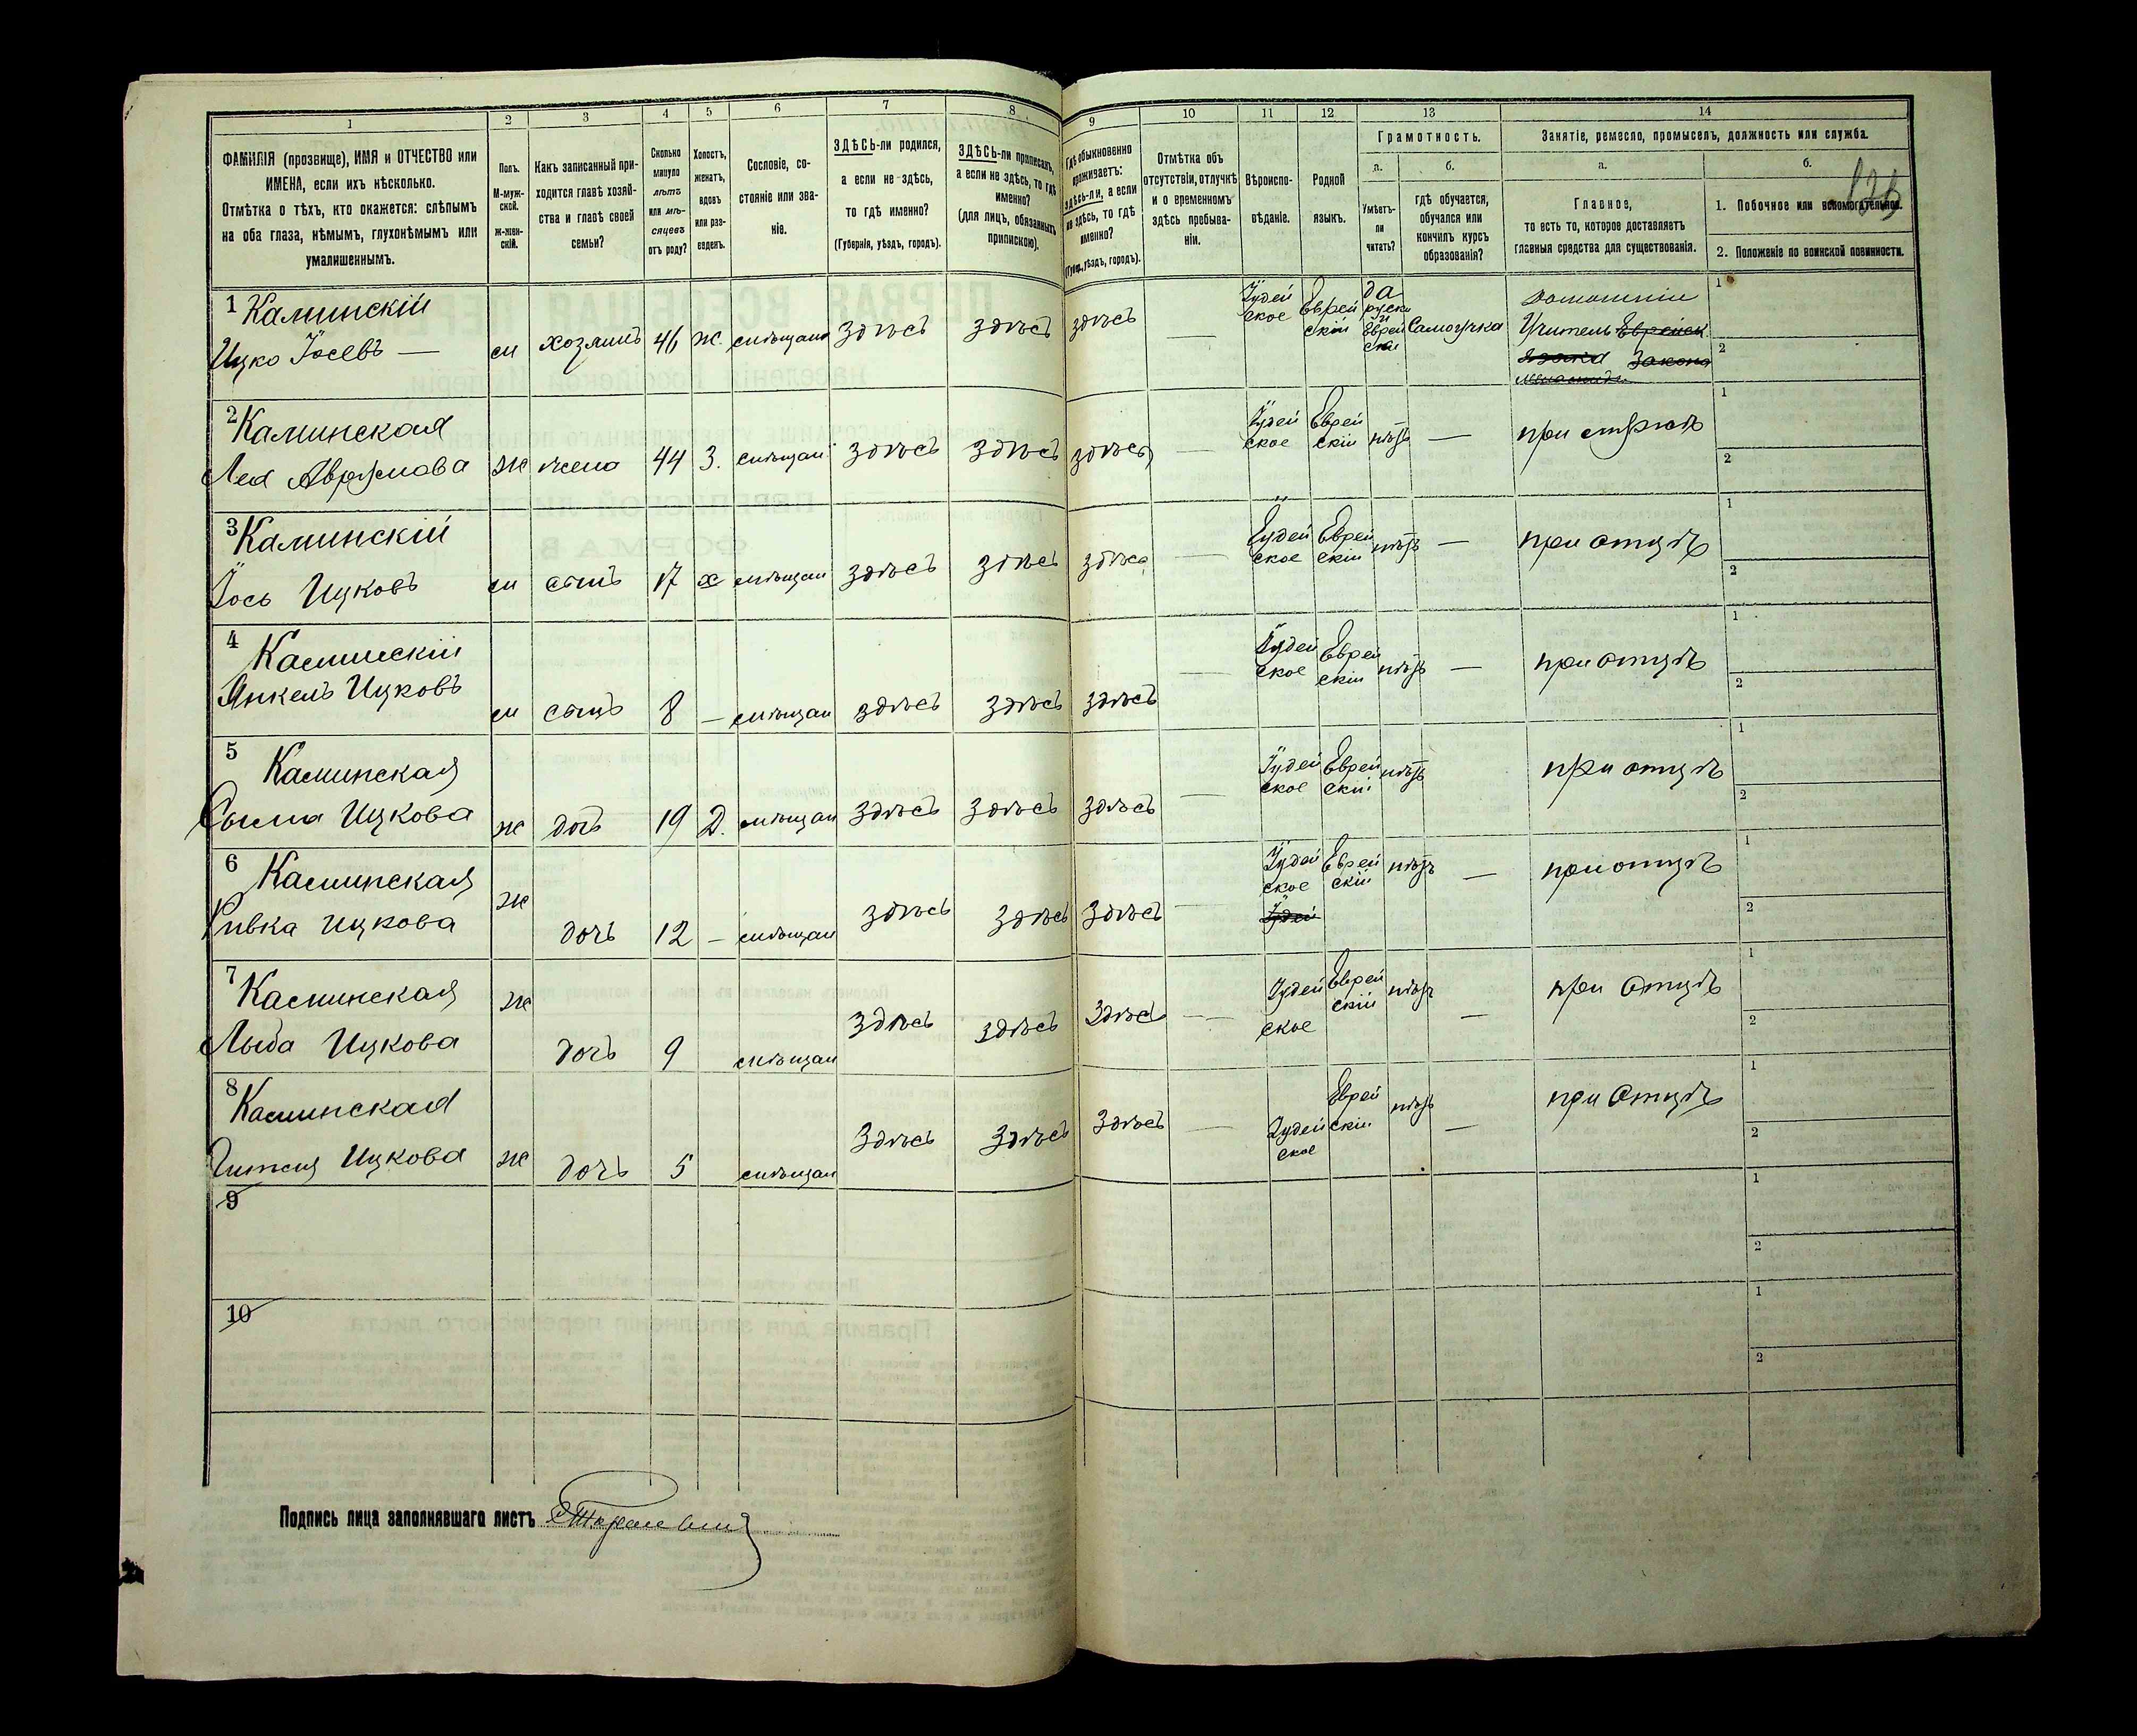 1 2 3 4 5 6 7 8 9 10 11 12 13 14
ФАМИЛІЯ (прозвище), ИМЯ и ОТЧЕСТВО или
ИМЕНА, если ихъ нѣсколько.
Отмѣтка о тѣхъ, кто окажется: слѣпымъ
на оба глаза, нѣмымъ, глухонѣмымъ или
умалишеннымъ.
Полъ.
М-муж-
ской.
ж-жен-
скій.
Какъ записанный при-
ходится главѣ хозяй-
ства и главѣ своей
семьи?
Сколько
минуло
лѣтъ
или мѣ-
сяцевъ
отъ роду?
Холостъ,
женатъ,
вдовъ
или раз-
веденъ.
Сословіе, со-
стояніе или зва-
ніе.
ЗДѢСЬ-ли родился,
а если не здѣсь,
то гдѣ именно?
(Губернія, уѣздъ, городъ).
ЗДѢСЬ-ли приписанъ,
а если не здѣсь, то гдѣ
именно?
(для лицъ, обязанныхъ
припискою).
Гдѣ обыкновенно
проживаетъ:
здѣсь-ли, а если
не здѣсь, то гдѣ
именно?
(Губер., уѣздъ, городъ).
Отмѣтка объ
отсутствіи, отлучкѣ
и о временномъ
здѣсь пребыва-
ніи.
Вѣроиспо-
вѣданіе.
Родной
языкъ.
Грамотность.
а. б.
Умѣетъ-
ли
читать?
гдѣ обучается,
обучался или
кончилъ курсъ
образованія?
Занятіе, ремесло, промыселъ, должность или служба.
а. б.
Главное,
то есть то, которое доставляетъ
главныя средства для существованія.
1. Побочное или вспомогательное.
2. Положеніе по воинской повинности.
1 Каминскій
Ицко Іосевъ — м хозяинъ 46 ж. мѣщан здѣсь здѣсь здѣсь — Іудей
ское Еврей
скій да
руски
и
Еврей
ски Самоучка домашній
Учитель Еврейск
языка Закона
1
2
2 Каминская
Лея Аврумова ж жена 44 З. мѣщан здѣсь здѣсь здѣсь — Іудей
ское Еврей
скій нѣтъ — при мужѣ
1
2
3 Каминскій
Іось Ицковъ м сынъ 17 х мѣщан здѣсь здѣсь здѣсь — Іудей
ское Еврей
скій нѣтъ — при отцѣ
1
2
4 Каминскій
Янкель Ицковъ м сынъ 8 — мѣщан здѣсь здѣсь здѣсь — Іудей
ское Еврей
скій нѣтъ — при отцѣ
1
2
5 Каминская
Сыма Ицкова ж дочь 19 Д. мѣщан здѣсь здѣсь здѣсь — Іудей
ское Еврей
скій нѣтъ при отцѣ
1
2
6 Каминская
Ривка Ицкова ж дочь 12 — мѣщан здѣсь здѣсь здѣсь — Іудей
ское
Іудей Еврей
скій нѣтъ — при отцѣ
1
2
7 Каминская
Лыба Ицкова ж дочь 9 мѣщан здѣсь здѣсь здѣсь — Іудей
ское Еврей
скій нѣтъ — при отцѣ
1
2
8 Каминская
Гитля Ицкова ж дочь 5 мѣщан здѣсь здѣсь здѣсь — Іудей
ское Еврей
скій нѣтъ — при отцѣ
1
2
9
1
2
10
1
2
Подпись лица заполнявшаго листъ